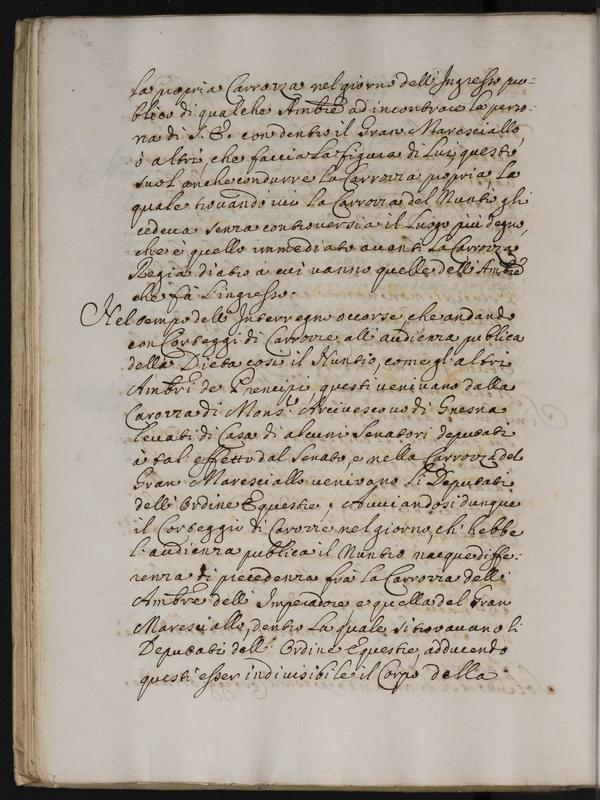 la propria Carrozza nel giorno dell'Ingresso pu-
blico di qualche Ambre ad incontrare la perso-
na di S. E. con dentro il Gran Maresciallo,
ò altri, che faccia la figura di Lui, questo
suol' anche condurre la Carrozza propria, la
quale trovando ivi la Carrozza del Nuntio gli
cedeva senza controversia il luogo più degno,
che è quello immediato avanti la Carrozza
Regia dietro a cui vanno quelle dell'Ambre
che fà l'ingresso.
Nel tempo dell'Interregno occorse che andando
con Corteggi di Carrozze all'audienza publica
della Dieta così il Nuntio, come gl'altri
Ambri de Prencipi, questi venivano dalla
Carozza di Monsr. Arcivescovo di Gnesna
levati di Casa di alcuni Senatori deputati
à tal' effetto dal Senato, e nella Carrozza del
Gran Maresciallo venivano li Deputati
dell'Ordine Equestre. Avviandosi dunque
il Corteggio di Carozze nel giorno, ch'hebbe
l'audienza publica il Nuntio nacque diffe-
renza di precedenza frà la Carrozza dell'
Ambre dell'Imperadore, e quella del Gran
Maresciallo, dentro la quale si trovavano li
Deputati dell'Ordine Equestre, adducendo
questi esser indivisibile il Corpo della